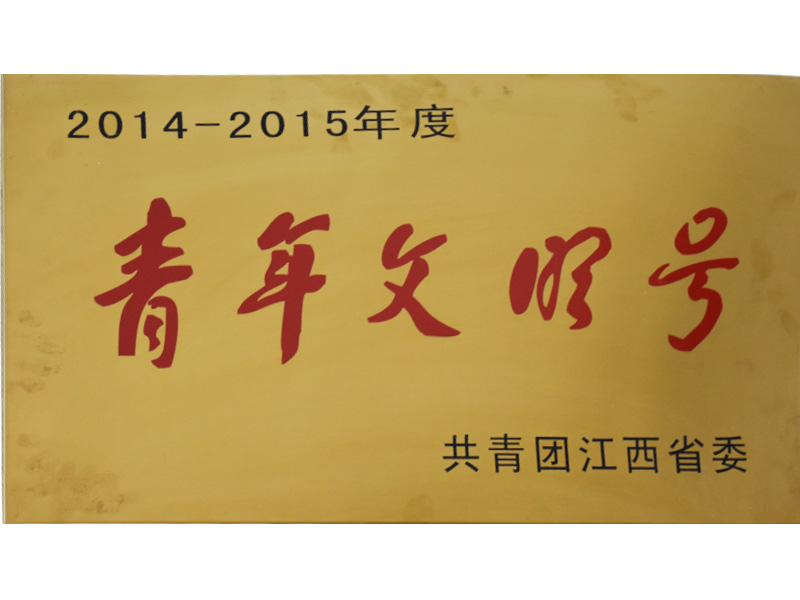 2014-2015年度
青年文明号
共青团江西省委